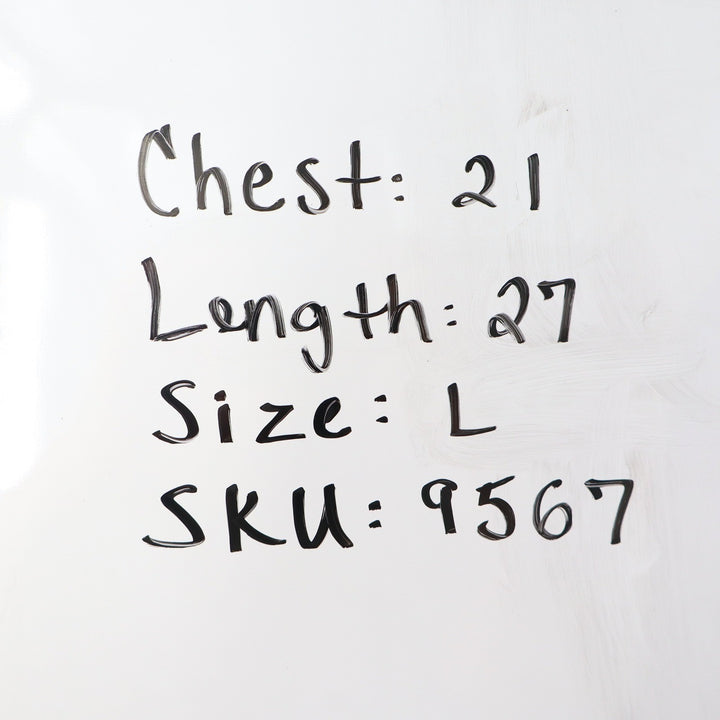 Chest: 21
Length: 27
Size: L
SKU: 9567